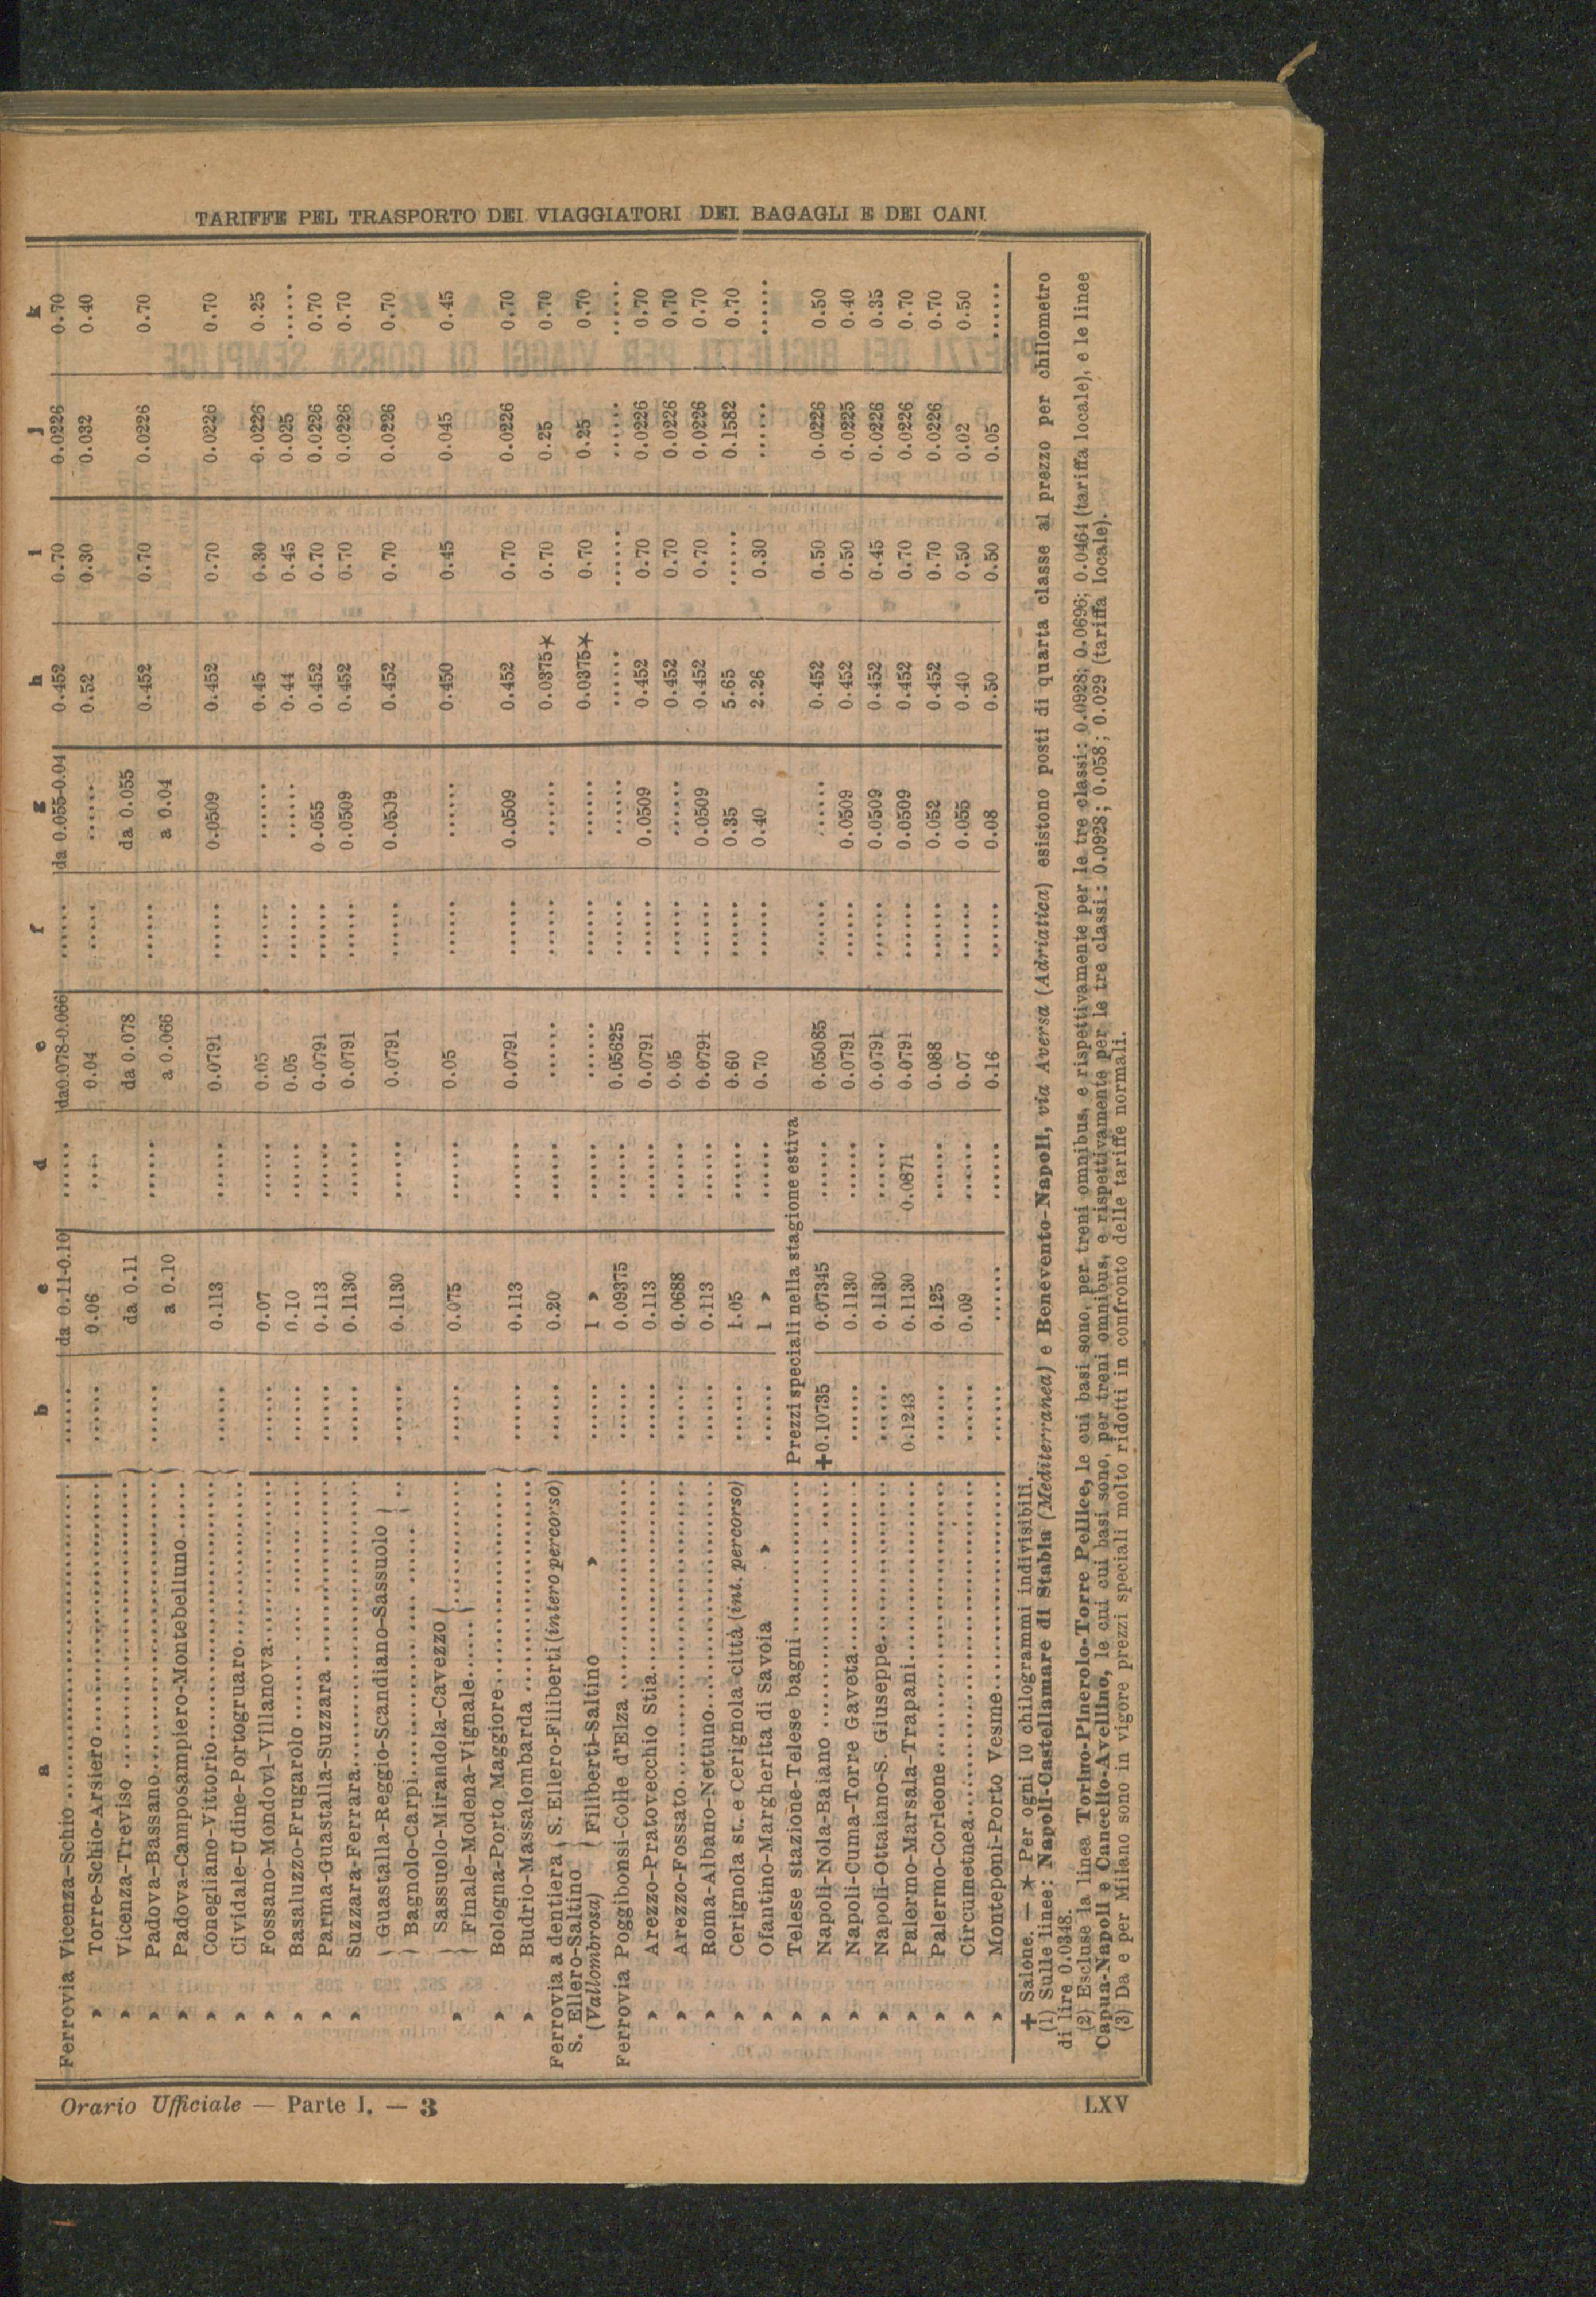 TARIFFE PEL TRASPORTO DEI VIAGGIATORI DEI BAGAGLI E DEI CANI
a b c d e f g h i j k
Ferrovia Vicenza-Schio ...... da 0.11-0.10 ...... da 0.078-0.066 ...... da 0.055-0.04 0.452 0.70 0.0226 0.70
» Torre-Schio-Arsiero ...... 0.06 ..... 0.04 ...... ...... 0.52 0.30 0.032 0.40
» Vicenza-Treviso } da 0.11 da 0.078 da 0.055
» Padova-Bassano } ...... ...... ...... 0.452 0.70 0.0226 0.70
» Padova-Camposampiero-Montebelluno } a 0.10 a 0.066 a 0.04
» Conegliano-Vittorio } ...... 0.113 ...... 0.0791 ...... 0.0509 0.452 0.70 0.0226 0.70
» Cividale-Udine-Portogruaro }
» Fossano-Mondovì-Villanova ...... 0.07 ...... 0.05 ...... ...... 0.45 0.30 0.0226 0.25
» Basaluzzo-Frugarolo ...... 0.10 ...... 0.05 ...... ...... 0.44 0.45 0.025 ......
» Parma-Guastalla-Suzzara ...... 0.113 ...... 0.0791 ...... 0.055 0.452 0.70 0.0226 0.70
» Suzzara-Ferrara ...... 0.1130 ...... 0.0791 ...... 0.0509 0.452 0.70 0.0226 0.70
} Guastalla-Reggio-Scandiano-Sassuolo } ...... 0.1130 ...... 0.0791 ...... 0.0509 0.452 0.70 0.0226 0.70
} Bagnolo-Carpi }
» } Sassuolo-Mirandola-Cavezzo { ...... 0.075 ...... 0.05 ...... ...... 0.450 0.45 0.045 0.45
} Finale-Modena-Vignale {
» Bologna-Porto Maggiore } ...... 0.113 ...... 0.0791 ...... 0.0509 0.452 0.70 0.0226 0.70
» Budrio-Massalombarda }
Ferrovia a dentiera { S. Ellero-Filiberti (intero percorso) ...... 0.20 ...... ...... ...... ...... 0.0375* 0.70 0.25 0.70
S. Ellero-Saltino
(Vallombrosa) } Filiberti-Saltino » ...... 1 » ...... ...... ...... ...... 0.0375* 0.70 0.25 0.70
Ferrovia Poggibonsi-Colle d'Elza ...... 0.09375 ...... 0.05625 ...... ...... ...... ...... ...... ......
» Arezzo-Pratovecchio Stia ...... 0.113 ...... 0.0791 ...... 0.0509 0.452 0.70 0.0226 0.70
» Arezzo-Fossato ...... 0.0688 ...... 0.05 ...... ...... 0.452 0.70 0.0226 0.70
» Roma-Albano-Nettuno ...... 0.113 ...... 0.0791 ...... 0.0509 0.452 0.70 0.0226 0.70
» Cerignola st. e Cerignola città (int. percorso) ...... 1.05 ...... 0.60 ...... 0.35 5.65 ...... 0.1582 0.70
» Ofantino-Margherita di Savoia » ...... 1 » ...... 0.70 ...... 0.40 2.26 0.30 ...... ......
» Telese stazione-Telese bagni ...... Prezzi speciali nella stagione estiva
» Napoli-Nola-Baiano ...... +0.10735 0.07345 ...... 0.05085 ...... ...... 0.452 0.50 0.0226 0.50
» Napoli-Cuma-Torre Gaveta ...... 0.1130 ...... 0.0791 ...... 0.0509 0.452 0.50 0.0225 0.40
» Napoli-Ottaiano-S. Giuseppe ...... 0.1130 ...... 0.0791 ...... 0.0509 0.452 0.45 0.0226 0.35
» Palermo-Marsala-Trapani ...... 0.1243 0.1130 0.0871 0.0791 ...... 0.0509 0.452 0.70 0.0226 0.70
» Palermo-Corleone ...... 0.125 ...... 0.088 ...... 0.052 0.452 0.70 0.0226 0.70
» Circumetnea ...... 0.09 ...... 0.07 ...... 0.055 0.40 0.50 0.02 0.50
» Monteponi-Porto Vesme ...... ...... ...... 0.16 ...... 0.08 0.50 0.50 0.05 ......
+ Salone. — * Per ogni 10 chilogrammi indivisibili.
(1) Sulle linee: Napoli-Castellamare di Stabia (Mediterranea) e Benevento-Napoli, via Aversa (Adriatica) esistono posti di quarta classe al prezzo per chilometro
di lire 0.0348.
(2) Escluse la linea Torino-Pinerolo-Torre Pellice, le cui basi sono, per treni omnibus, e rispettivamente per le tre classi: 0.0928; 0.0696; 0.0464 (tariffa locale), e le linee
Capua-Napoli e Cancello-Avellino, le cui cui basi sono, per treni omnibus, e rispettivamente per le tre classi: 0.0928; 0.058; 0.029 (tariffa locale).
(3) Da e per Milano sono in vigore prezzi speciali molto ridotti in confronto delle tariffe normali.
Orario Ufficiale — Parte I. — 3 LXV